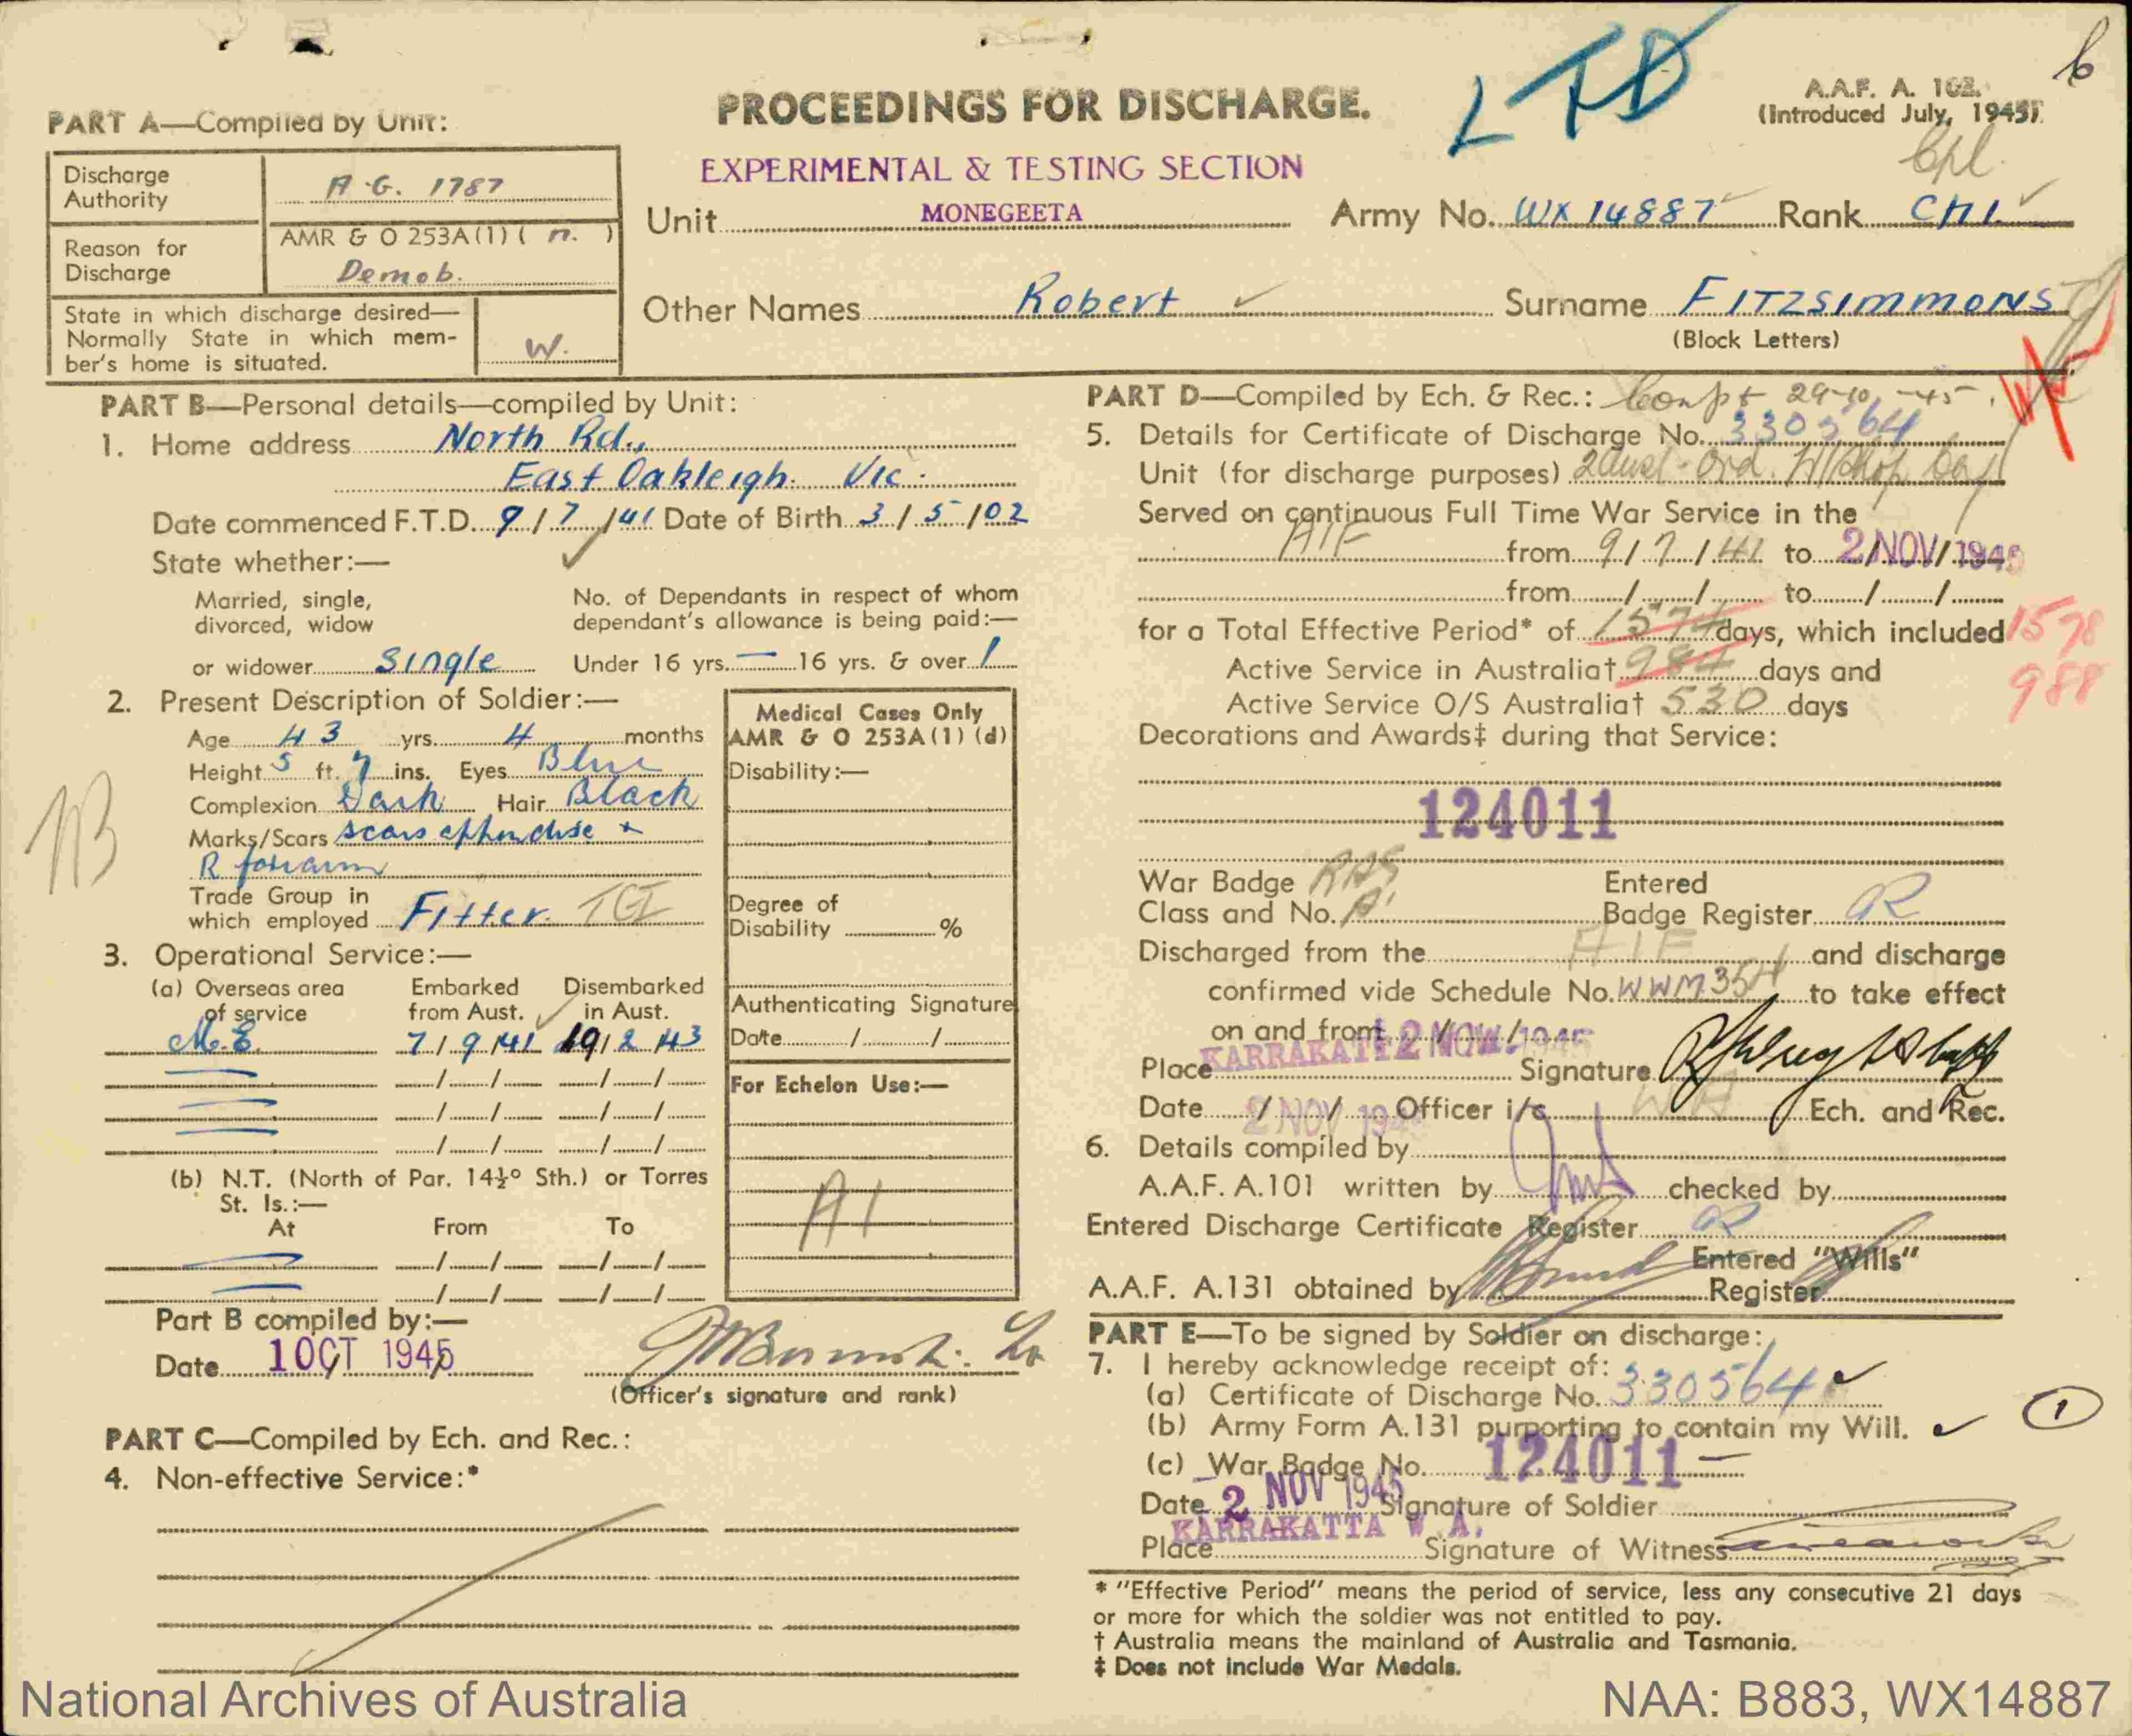 PROCEEDINGS FOR DISCHARGE.
LTD
6
A.A.F. A. 102.
(Introduced July, 1945).
PART A—Compiled by Unit:
Discharge Authority A.G. 1787
Reason for Discharge AMR & O 253A(1) ( n. )
Demob.
State in which discharge desired—
Normally State in which mem-
ber's home is situated. W.
EXPERIMENTAL & TESTING SECTION
Cpl.
Unit MONEGEETA Army No. WX 14887 Rank
Other Names Robert Surname FITZSIMMONS
(Block Letters)
PART B—Personal details—compiled by Unit:
1. Home address North Rd.,
East Oakleigh. Vic.
Date commenced F.T.D. 9/7/41 Date of Birth 3/5/02
State whether:—
Married, single,
divorced, widow
or widower Single
No. of Dependants in respect of whom
dependant's allowance is being paid:—
Under 16 yrs. — 16 yrs. & over 1
2. Present Description of Soldier:—
Age 43 yrs. 4 months
Height 5 ft. 7 ins. Eyes Blue
Complexion Dark Hair Black
Marks/Scars scars +
R forearm
Trade Group in
which employed Fitter. TGI
3. Operational Service:—
(a) Overseas area
of service
Embarked
from Aust.
Disembarked
in Aust.
M.E. 7/9/41 19/2/43
(b) N.T. (North of Par. 14½° Sth.) or Torres
St. Is.:—
At From To
Medical Cases Only
AMR & O 253A(1) (d)
Disability:—
Degree of
Disability %
Authenticating Signature
Date / /
For Echelon Use:—
A1
Part B compiled by:—
Date 1 OCT 1945
(Officer's signature and rank)
PART C—Compiled by Ech. and Rec.:
4. Non-effective Service:*
PART D—Compiled by Ech. & Rec.: 29-10-45
5. Details for Certificate of Discharge No. 330564
Unit (for discharge purposes) 2 Aust. Ord. W/Shop Coy
Served on continuous Full Time War Service in the
AIF from 9/7/41 to 2/NOV/1945
from / / to / /
for a Total Effective Period* of 1574 days, which included 1578
Active Service in Australia† 984 days and 988
Active Service O/S Australia† 530 days
Decorations and Awards‡ during that Service:
124011
War Badge RAS
Class and No. A
Entered
Badge Register
Discharged from the AIF and discharge
confirmed vide Schedule No. WWM354 to take effect
on and from 2 NOV. 1945
Place KARRAKATTA Signature
Date 2 NOV 1945 Officer i/c WA Ech. and Rec.
6. Details compiled by
A.A.F. A.101 written by checked by
Entered Discharge Certificate Register
A.A.F. A.131 obtained by
Entered "Wills"
Register
PART E—To be signed by Soldier on discharge:
7. I hereby acknowledge receipt of:
(a) Certificate of Discharge No. 330564
(b) Army Form A.131 purporting to contain my Will. 1
(c) War Badge No. 124011
Date 2 NOV 1945 Signature of Soldier
Place KARRAKATTA W.A. Signature of Witness
* "Effective Period" means the period of service, less any consecutive 21 days
or more for which the soldier was not entitled to pay.
† Australia means the mainland of Australia and Tasmania.
‡ Does not include War Medals.
National Archives of Australia
NAA: B883, WX14887